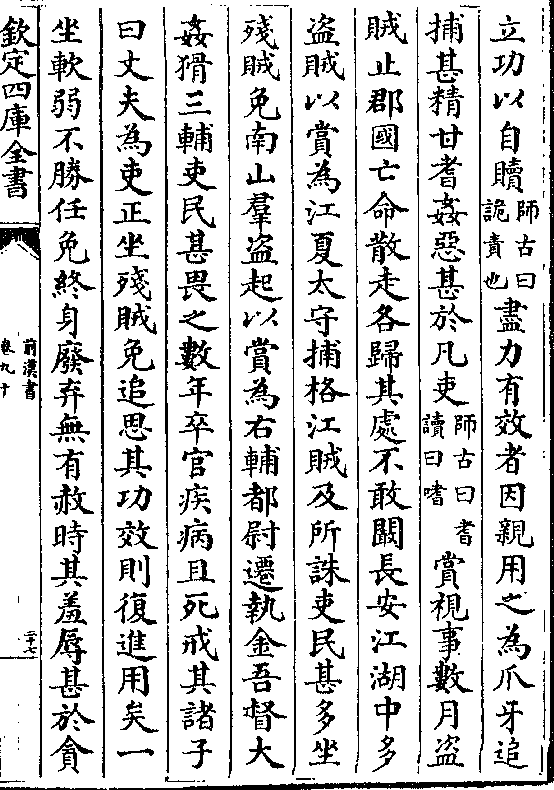 立功以自贖師古曰詭責也盡力有效者因親用之為爪牙追
捕甚精甘耆姦惡甚於凡吏師古曰耆讀曰嗜賞視事數月盗
賊止郡國亡命散走各歸其處不敢闚長安江湖中多
盗賊以賞為江夏太守捕格江賊及所誅吏民甚多坐
殘賊免南山羣盗起以賞為右輔都尉遷執金吾督大
姦猾三輔吏民甚畏之數年卒官疾病且死戒其諸子
曰丈夫為吏正坐殘賊免追思其功效則復進用矣一
坐軟弱不勝任免終身廢弃無有赦時其羞辱甚於貪
欽定四庫全書
前漢書
卷九十
二十七